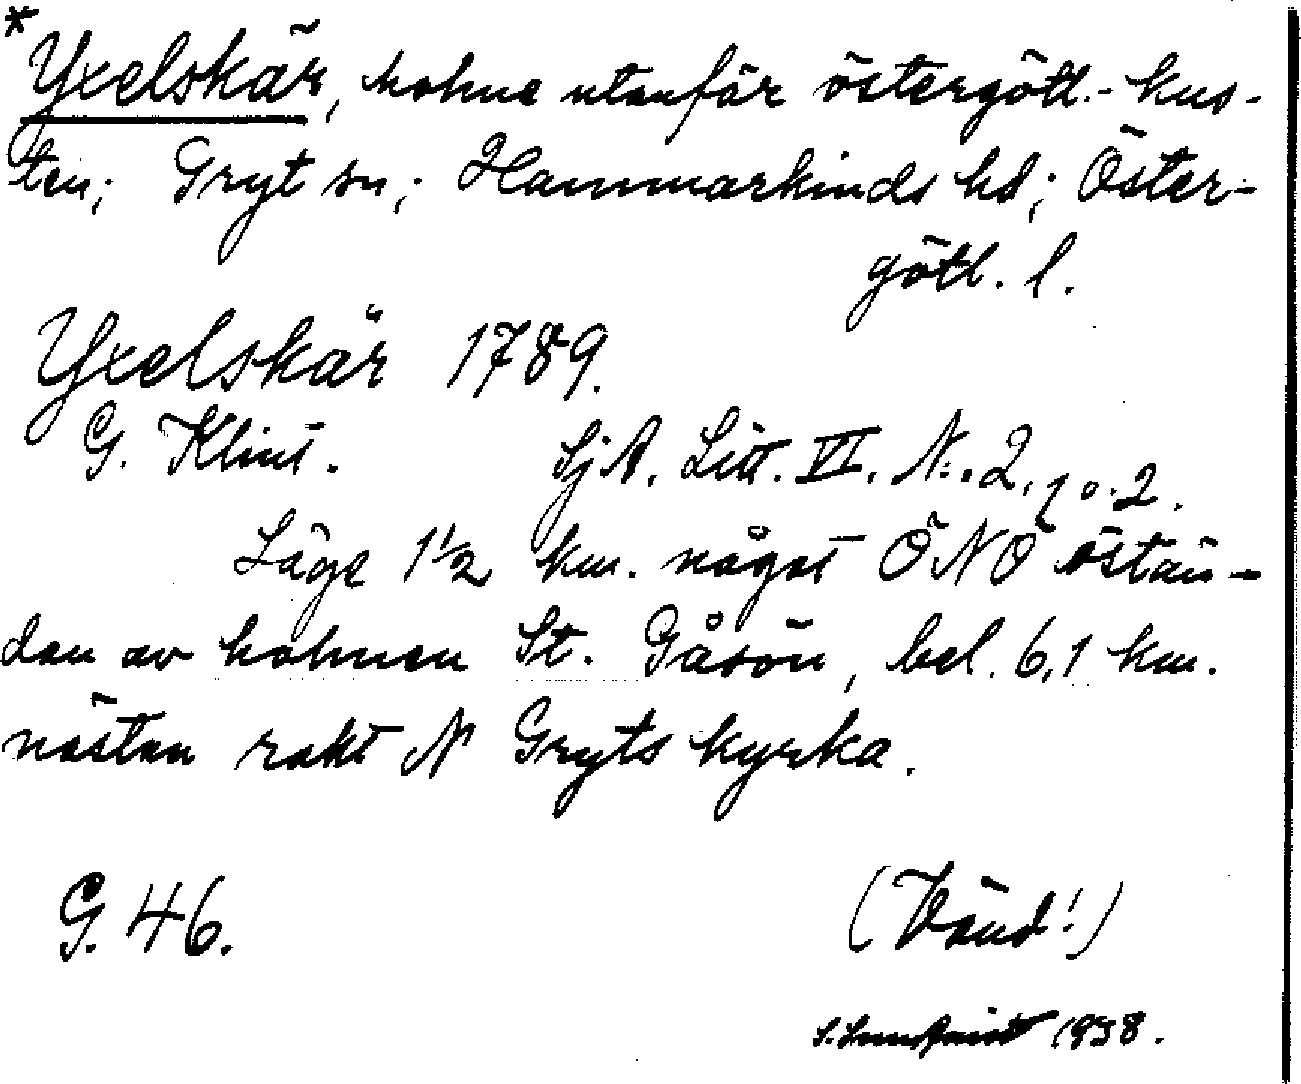 *Yxelskär, holme utanför östergötl.-kus-
ten; Gryt sn.; Hammarkinds hd; Öster-
götl. l.
Yxelskär 1789.
G. Klint. SjA. Litt. VI. N:. 2, 1 o. 2.
Läge 1½ km. något ÖNÖ östan-
dan av holmen St. Gåsön, bel. 6,1 km.
nästan rakt N Gryts kyrka.
G. 46. (Vänd!)
1938.